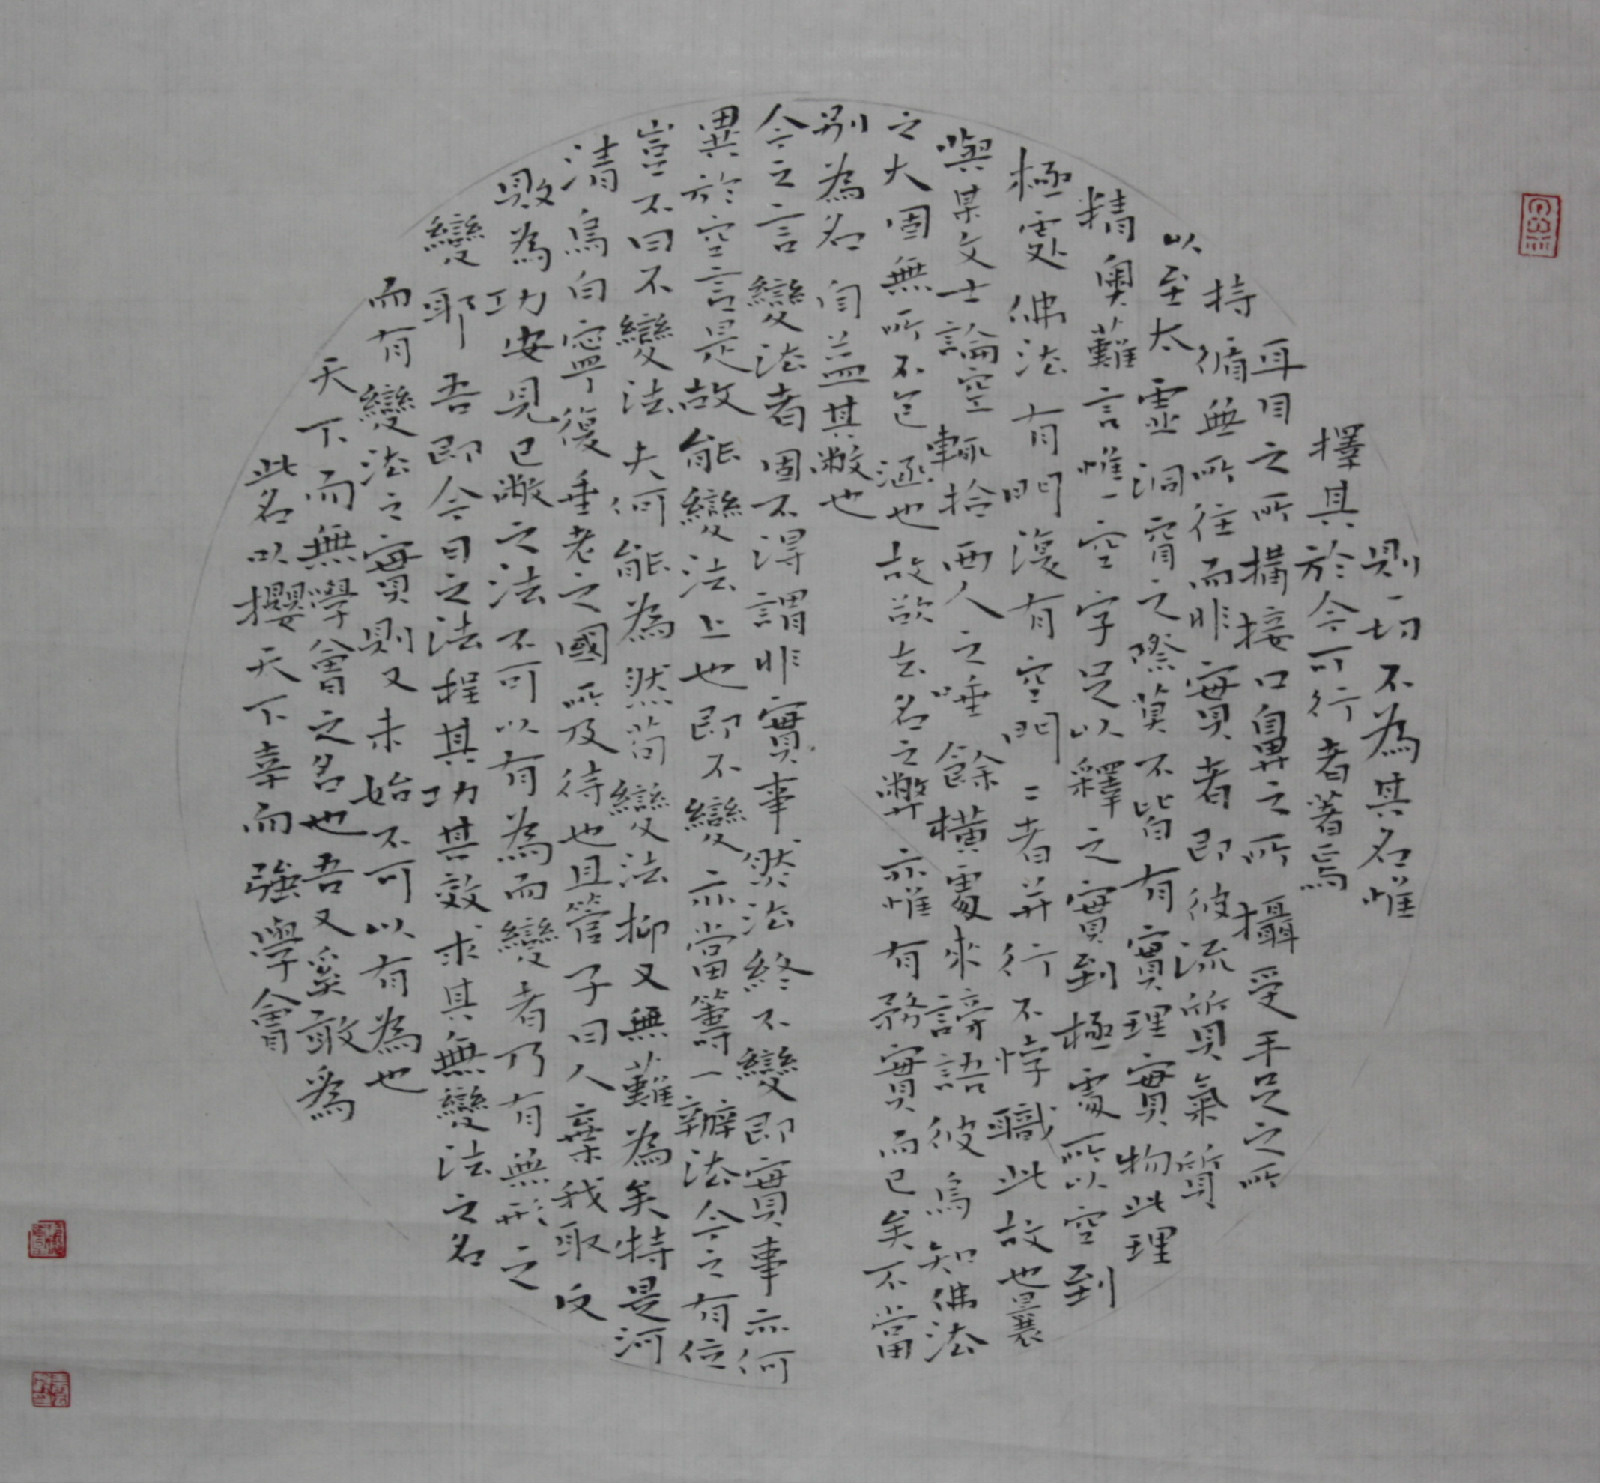 則一切不為其名惟
擇其於今可行者著焉
耳目之所搆接口鼻之所攝受手足之所
持循無所往而非實者即彼流質氣質
以至太虛洞窅之際莫不皆有實理實物此理
精奧難言唯一空字足以釋之實到極處所以空到
極處佛法有門復有空門二者并行不悖職此故也曩
與某文士論空輒拾西人之唾餘橫處來謗語彼烏知佛法
之大固無所不包涵也故欲去名之弊亦惟有務實而已矣不當
別為名自益其敝也
今之言變法者固不得謂非實事然法終不變即實事亦何
異於空言是故能變法上也即不變亦當籌一辦法今之有位
豈不曰不變法夫何能為然苟變法抑又無難為矣特是河
清烏白寧復垂老之國所及待也且管子曰人棄我取反
敗為功安見已敝之法不可以有為而變者乃有無形之
變耶吾即今日之法程其功其效求其無變法之名
而有變法之實則又未始不可以有為也
天下而無學會之名也吾又奚敢為
此名以攖天下辜而強學會